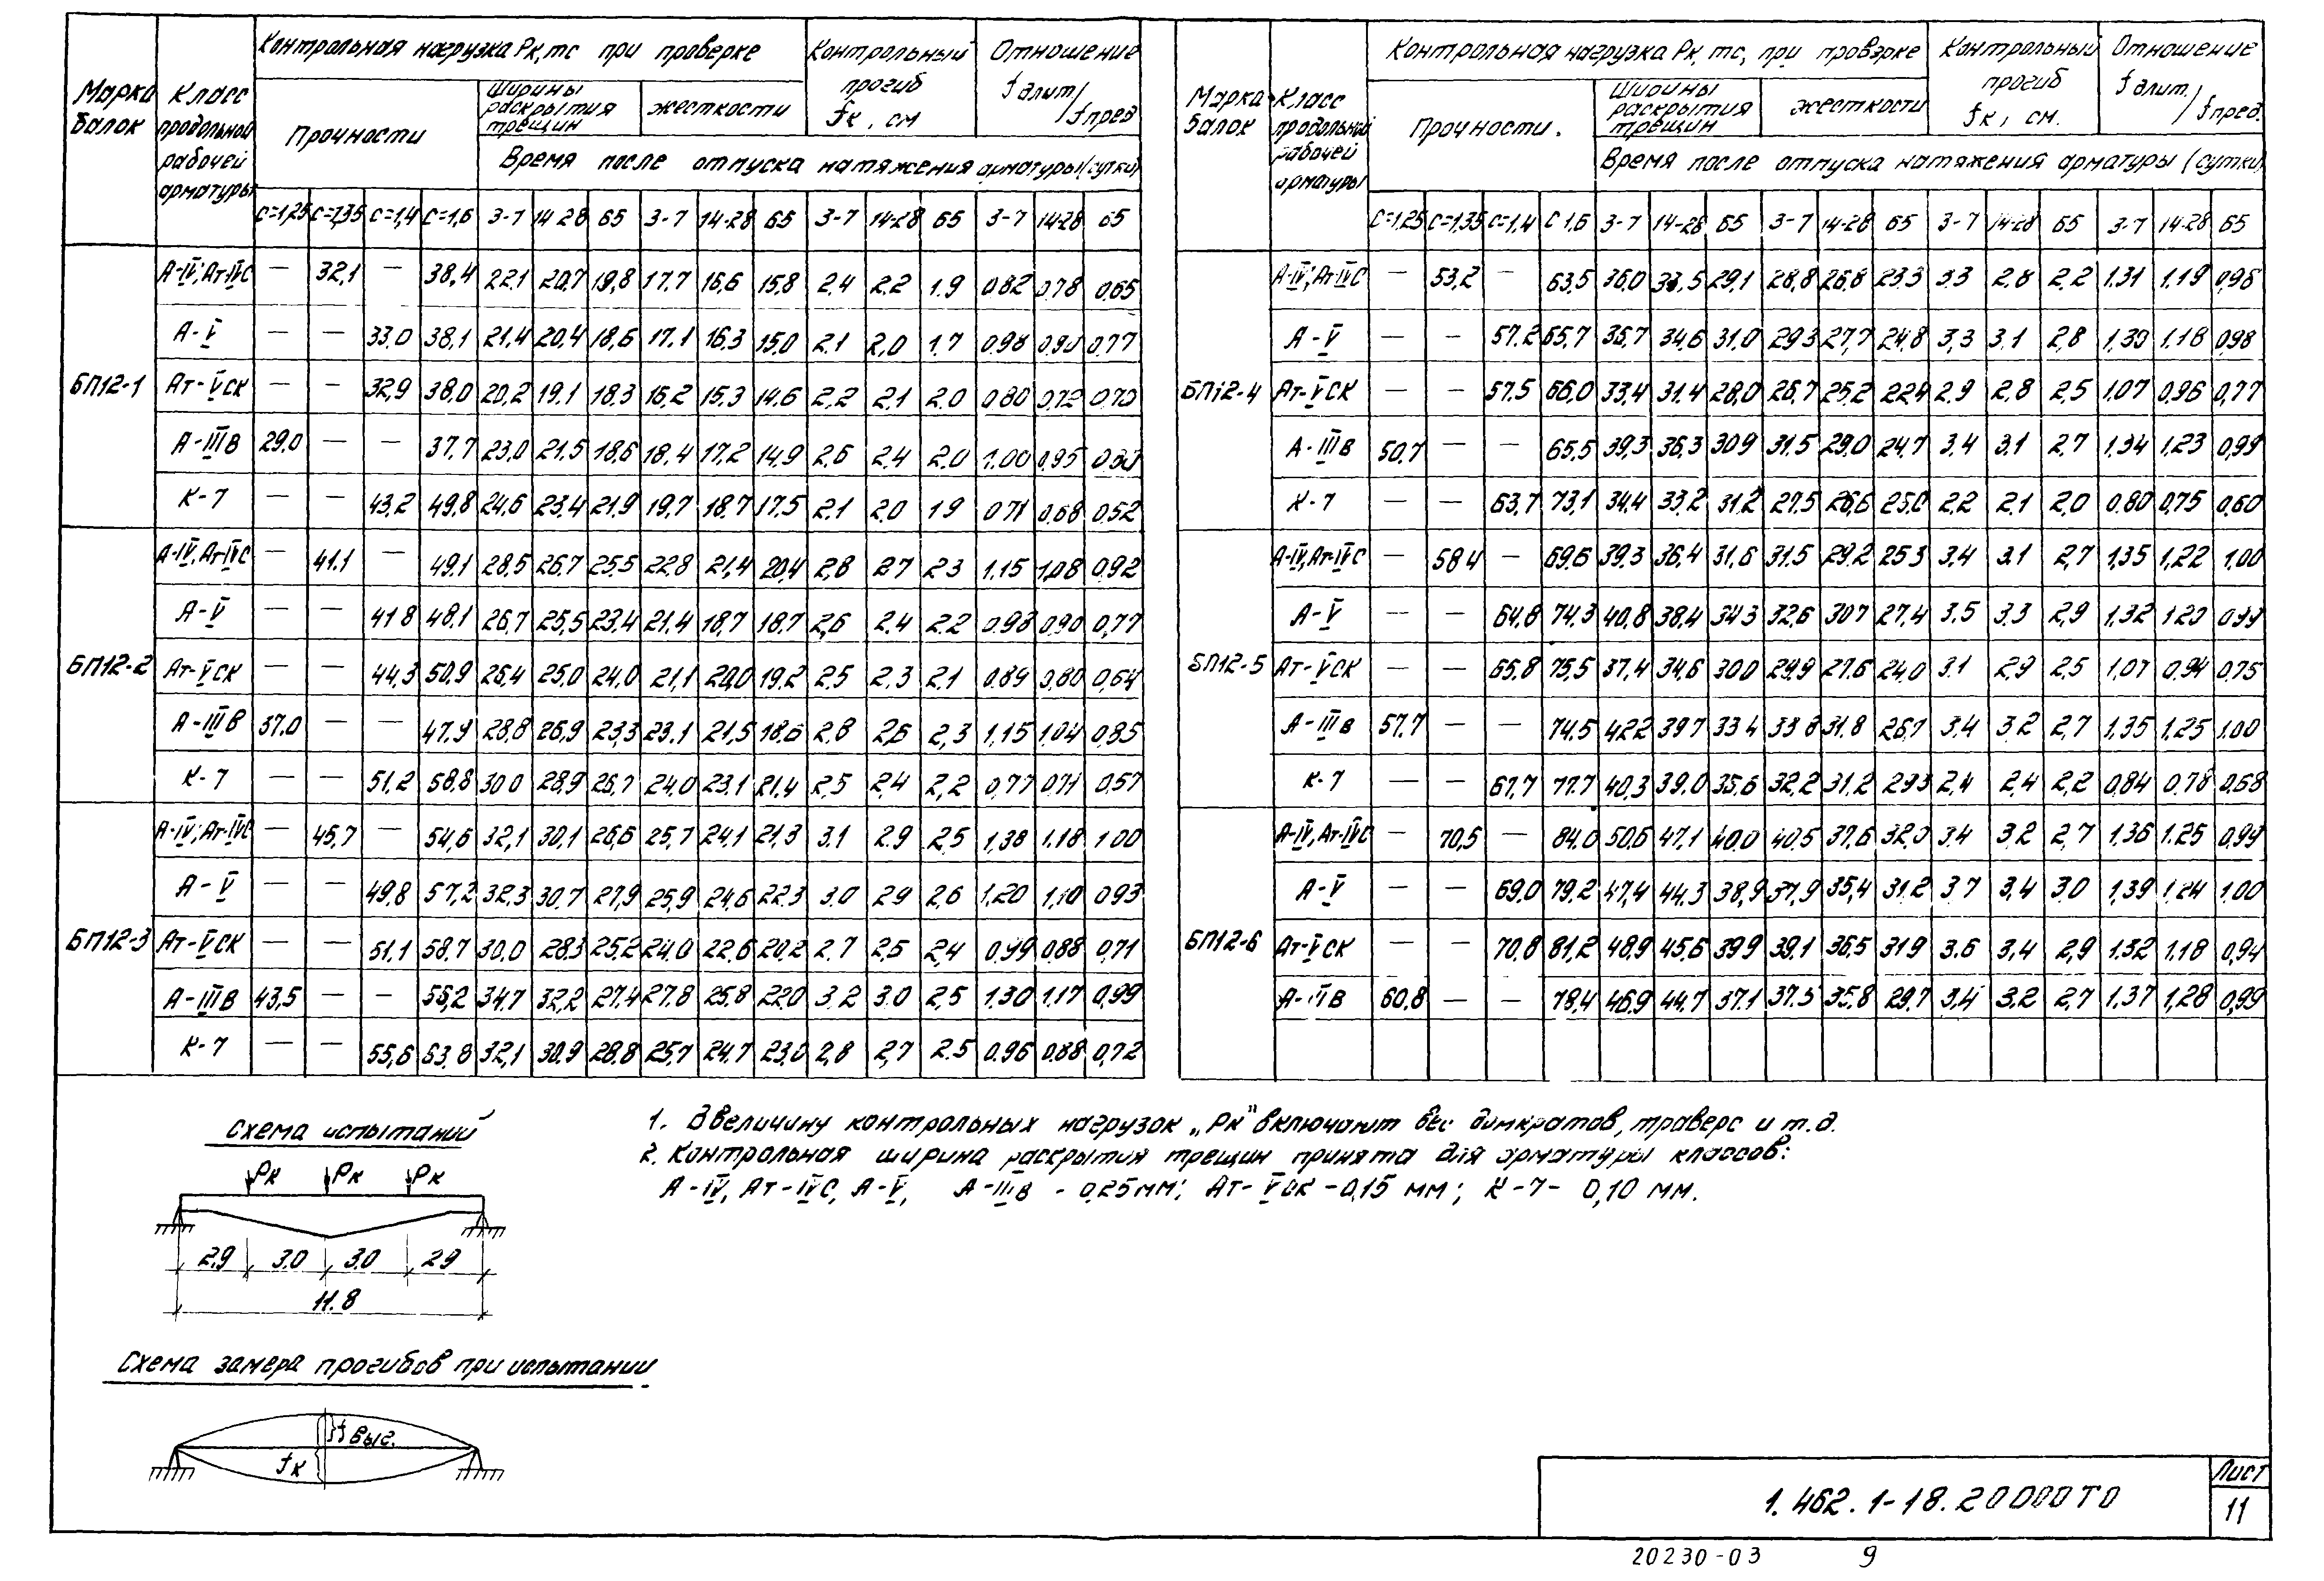 Марка балок | Класс продольной рабочей арматуры | Контрольная нагрузка Рк, тс при проверке | Контрольный прогиб fк, см | Отношение f длит/f пред
Прочности | Ширины раскрытия трещин | жесткости
Время после отпуска натяжения арматуры (сутки)
С=1,25 С=1,35 С=1,4 С=1,6 3-7 14-28 65 3-7 14-28 65 3-7 14-28 65 3-7 14-28 65
БП12-1
А-IV; Ат-IVС — 32,1 — 38,4 22.1 20,7 19,8 17.7 16,6 15,8 2.4 2.2 1.9 0.82 0.78 0,65
А-V — — 33.0 38,1 21,4 20,4 18,6 17.1 16.3 15,0 2.1 2,0 1.7 0.98 0.90 0,77
Ат-VСК — — 32,9 38,0 20,2 19.1 18.3 16,2 15.3 14.6 2,2 2.1 2.0 0.80 0,72 0,70
А-IIIв 29.0 — — 37.7 23,0 21,5 18,6 18,4 17,2 14,9 2,6 2.4 2.0 1.00 0.95
К-7 — — 43,2 49,8 24,6 23.4 21,9 19,7 18,7 17,5 2,1 2.0 1 9 0.71 0,68 0,52
БП12-2
А-IV, Ат-IVС — 41.1 — 49.1 28,5 26,7 25,5 22,8 21,4 20,4 2,8 2 7 2 3 1.15 1,08 0,92
А-V — — 41 8 48,1 26,7 25,5 23,4 21,4 18,7 18,7 2,6 2.4 2.2 0.98 0,90 0,77
Ат-VСК — — 44,3 50,9 26,4 25,0 24,0 21,1 20,0 19,2 2,5 2,3 2,1 0.89 0,80 0,64
А-IIIв 37.0 — — 47.9 28,8 26,9 23,3 23.1 21,5 18,6 2,8 2,6 2,3 1,15 1.04 0,85
К-7 — — 51,2 58,8 30 0 28,9 26,7 24,0 23,1 21,4 2,5 2,4 2,2 0,77 0,71 0,57
БП12-3
А-IV; Ат-IVС — 45,7 — 54,6 32,1 30,1 26,6 25,7 24,1 21,3 3.1 2.9 2,5 1,38 1.18 1 00
А-V — — 49,8 57,2 32,3 30,7 27,9 25,9 24,6 22,3 3.0 2 9 2,6 1,20 1,10 0,93
Ат-VСК — — 51,1 58,7 30,0 28,3 25,2 24,0 22,6 20,2 2.7 2,5 2,4 0.99 0,88 0,71
А-IIIв 43,5 — — 56,2 34,7 32,2 27,4 27.8 25,8 22,0 3.2 3.0 2,5 1.30 1.17 0,99
К-7 — — 55,6 63,8 32,1 30,9 28.8 25,7 24.7 23,0 2,8 2,7 2.5 0.96 0.88 0,72
Марка балок | Класс продольной рабочей арматуры | Контрольная нагрузка Рк, тс, при проверке | Контрольный прогиб fк, см. | Отношение f длит./f пред.
Прочности. | Ширины раскрытия трещин | жесткости
Время после отпуска натяжения арматуры (сутки)
С=1,25 С=1,35 С=1,4 С 1,6 3-7 14-28 65 3-7 14-28 65 3-7 14-28 65 3-7 14-28 65
БП12-4
А-IV; Ат-IVС — 53,2 — 63,5 36,0 33,5 29,1 28,8 26,8 23.3 3.3 2,8 2.2 1.31 1.19 0,98
А-V — — 57.2 65,7 36,7 34,6 31,0 29,3 27,7 24,8 3,3 3.1 2,8 1,30 1.18 0,98
Ат-VСК — — 57,5 66,0 33,4 31.4 28,0 26,7 25,2 22,4 2.9 2,8 2,5 1,07 0,96 0,77
А-IIIв 50,7 — — 65,5 39,3 36,3 30 9 31.5 29,0 24,7 3,4 3.1 2,7 1,34 1,23 0,99
К-7 — — 63,7 73,1 34,4 33,2 31,2 27,5 26,6 25,0 2,2 2,1 2,0 0.80 0,75 0,60
БП12-5
А-IV, Ат-IVС — 58 4 — 69,6 39.3 36,4 31,6 31.5 29.2 25 3 3,4 3.1 2,7 1,35 1,22 1,00
А-V — — 64,8 74,3 40,8 38,4 34 3 32,6 30 7 27,4 3.5 3.3 2,9 1,32 1,20
Ат-VСК — — 65.8 75,5 37,4 34,6 30 0 29,9 27.6 24,0 3.1 2,9 2,5 1,07 0,94 0,75
А-IIIв 57.7 — — 74.5 42 2 39 7 33 4 33 8 31.8 26,7 3,4 3,2 2,7 1,35 1,25 1.00
К-7 — — 67,7 77.7 40,3 39.0 35,6 32,2 31,2 29 3 2,4 2,4 2,2 0,84 0,78 0,68
БП12-6
А-IV, Ат-IVС — 70,5 — 84.0 50,6 47,1 40,0 40,5 37,6 32,0 3.4 3.2 2,7 1,36 1.25 0,99
А-V — — 69,0 79,2 47,4 44,3 38,9 37,9 35,4 31.2 3.7 3,4 3.0 1,39 1,24 1.00
Ат-VСК — — 70,8 81,2 48,9 45,6 39 9 39,1 36,5 31 9 3.6 3,4 2,9 1.32 1,18 0,94
А-IIIв 60,8 — — 78,4 46.9 44.7 37.1 37.5 35,8 29,7 3,4 3,2 2,7 1,37 1,28 0,99
Схема испытаний
Рк Рк Рк
2,9 3.0 3.0 2 9
11.8
1. В величину контрольных нагрузок „Рк" включают вес домкратов, траверс и т.д.
2. Контрольная ширина раскрытия трещин принята для арматуры классов:
А-IV, Ат-IVС, А-V, А-IIIв - 0,25мм; Ат-VСК -0,15 мм; К-7- 0,10 мм.
Схема замера прогибов при испытании
f выг.
fк
1. 462. 1-18. 2 0000 Т0
Лист
11
20230-03 9